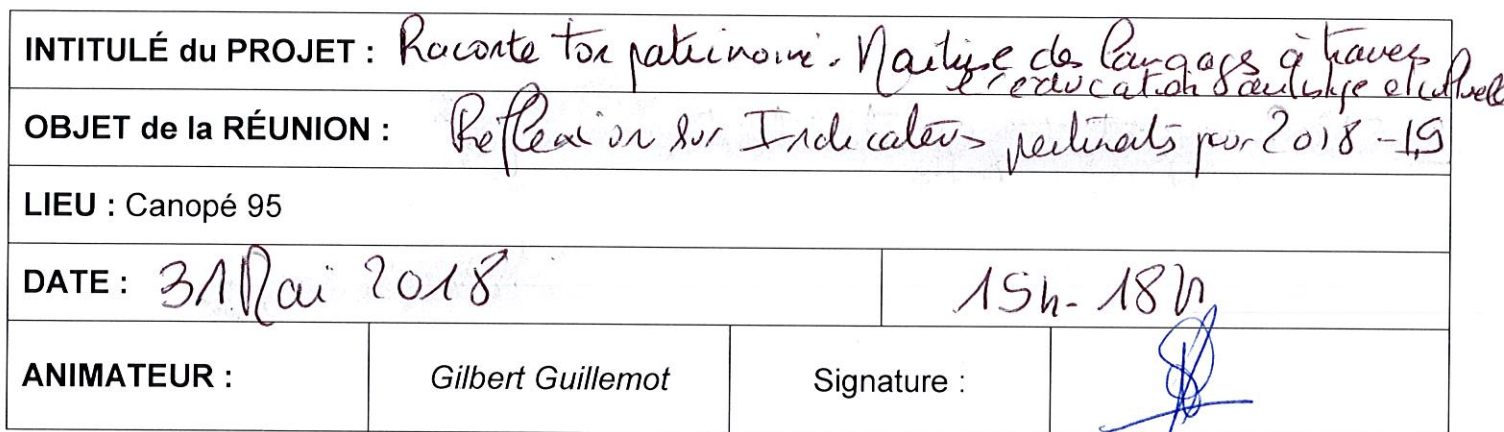 INTITULÉ du PROJET : Raconte ton patrimoine. Maîtrise des langages à travers
l'éducation artistique et culturelle
OBJET de la RÉUNION : Réflexion sur Indicateurs pertinents pour 2018-19
LIEU : Canopé 95
DATE : 31 Mai 2018 15h-18h
ANIMATEUR : Gilbert Guillemot Signature :